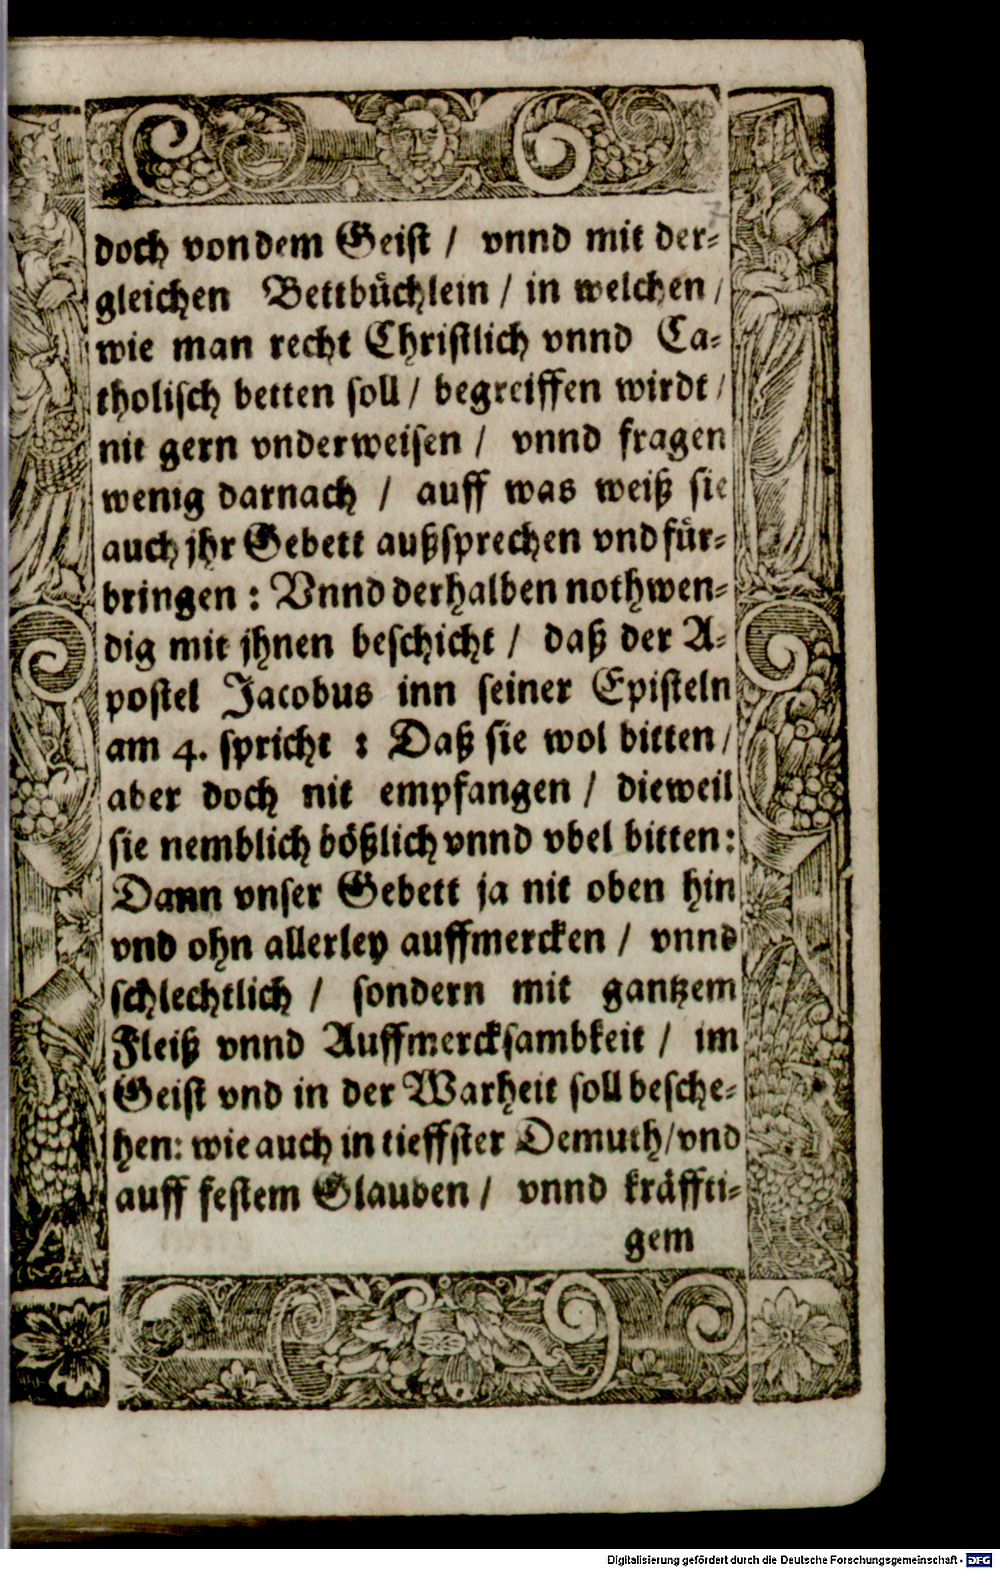 7
doch von dem Geist / vnnd mit der⸗
gleichen Bettbüchlein / in welchen /
wie man recht Christlich vnnd Ca⸗
tholisch betten soll / begreiffen wirdt /
nit gern vnderweisen / vnnd fragen
wenig darnach / auff was weiß sie
auch jhr Gebett außsprechen vnd für⸗
bringen : Vnnd derhalben nothwen⸗
dig mit jhnen beschicht / daß der A⸗
postel Jacobus inn seiner Episteln
am 4. spricht : Daß sie wol bitten /
aber doch nit empfangen / dieweil
sie nemblich bößlich vnnd vbel bitten:
Dann vnser Gebett ja nit oben hin
vnd ohn allerley auffmercken / vnnd
schlechtlich / sondern mit gantzem
Fleiß vnnd Auffmercksambkeit / im
Geist vnd in der Warheit soll besche⸗
hen: wie auch in tieffster Demuth / vnd
auff festem Glauben / vnnd kräffti⸗
gem
Digitalisierung gefördert durch die Deutsche Forschungsgemeinschaft - DFG